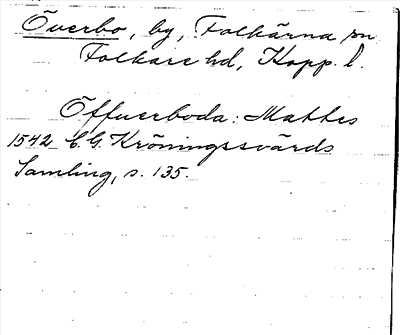 Överbo, by, Folkärna sn
Folkare hd, Kopp. l.
Öffuerboda: Mattes
1542 C.G. Kröningssvärds
Samling, s. 135.